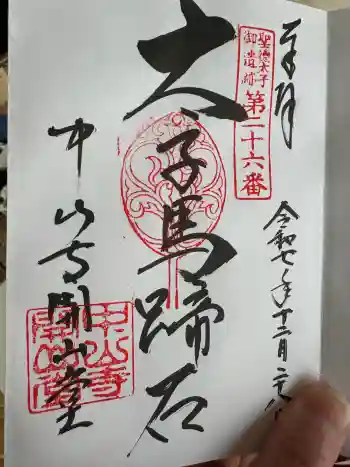 奉拝
聖徳太子
御遺跡
第二十六番
令和七年十二月二十八日
太子馬蹄石
中山寺開山堂
中山寺
開山堂